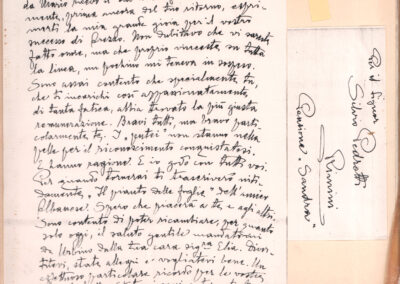 da Mario
mente, prima ancora del tuo ritorno, espri-
merti la mia grande gioia per il vostro
successo di Arezzo. Non dubitavo che vi sareste
fatto onore, ma che proprio vinceste su tutta
la linea, un pochino mi teneva in sospeso.
Sono assai contento che specialmente tu,
che ti incarichi così appassionatamente
di tanta fatica, abbia trovato la più giusta
remunerazione. Bravi tutti, ma bravo parti-
colarmente tu. I "gentis" non stanno nella
pelle per il riconoscimento conquistatovi.
E hanno ragione. E io godo con tutti voi.
Per quando tornerai ti trascriverò niti-
damente "Il pianto delle foglie" dell'amico
Albanese. Spero che piacerà a te e agli altri.
Sono contento di poter ricambiare, per quanto
solo oggi, il saluto gentile mandatomi
da Urbino dalla tua cara sig.ra Elia. Diver-
titevi, state allegri e vogliatevi bene. Un
affettuoso particolare ricordo per le vostre
Per il Signor
Silvio Pedrotti
Rimini
Pensione "Sandra"